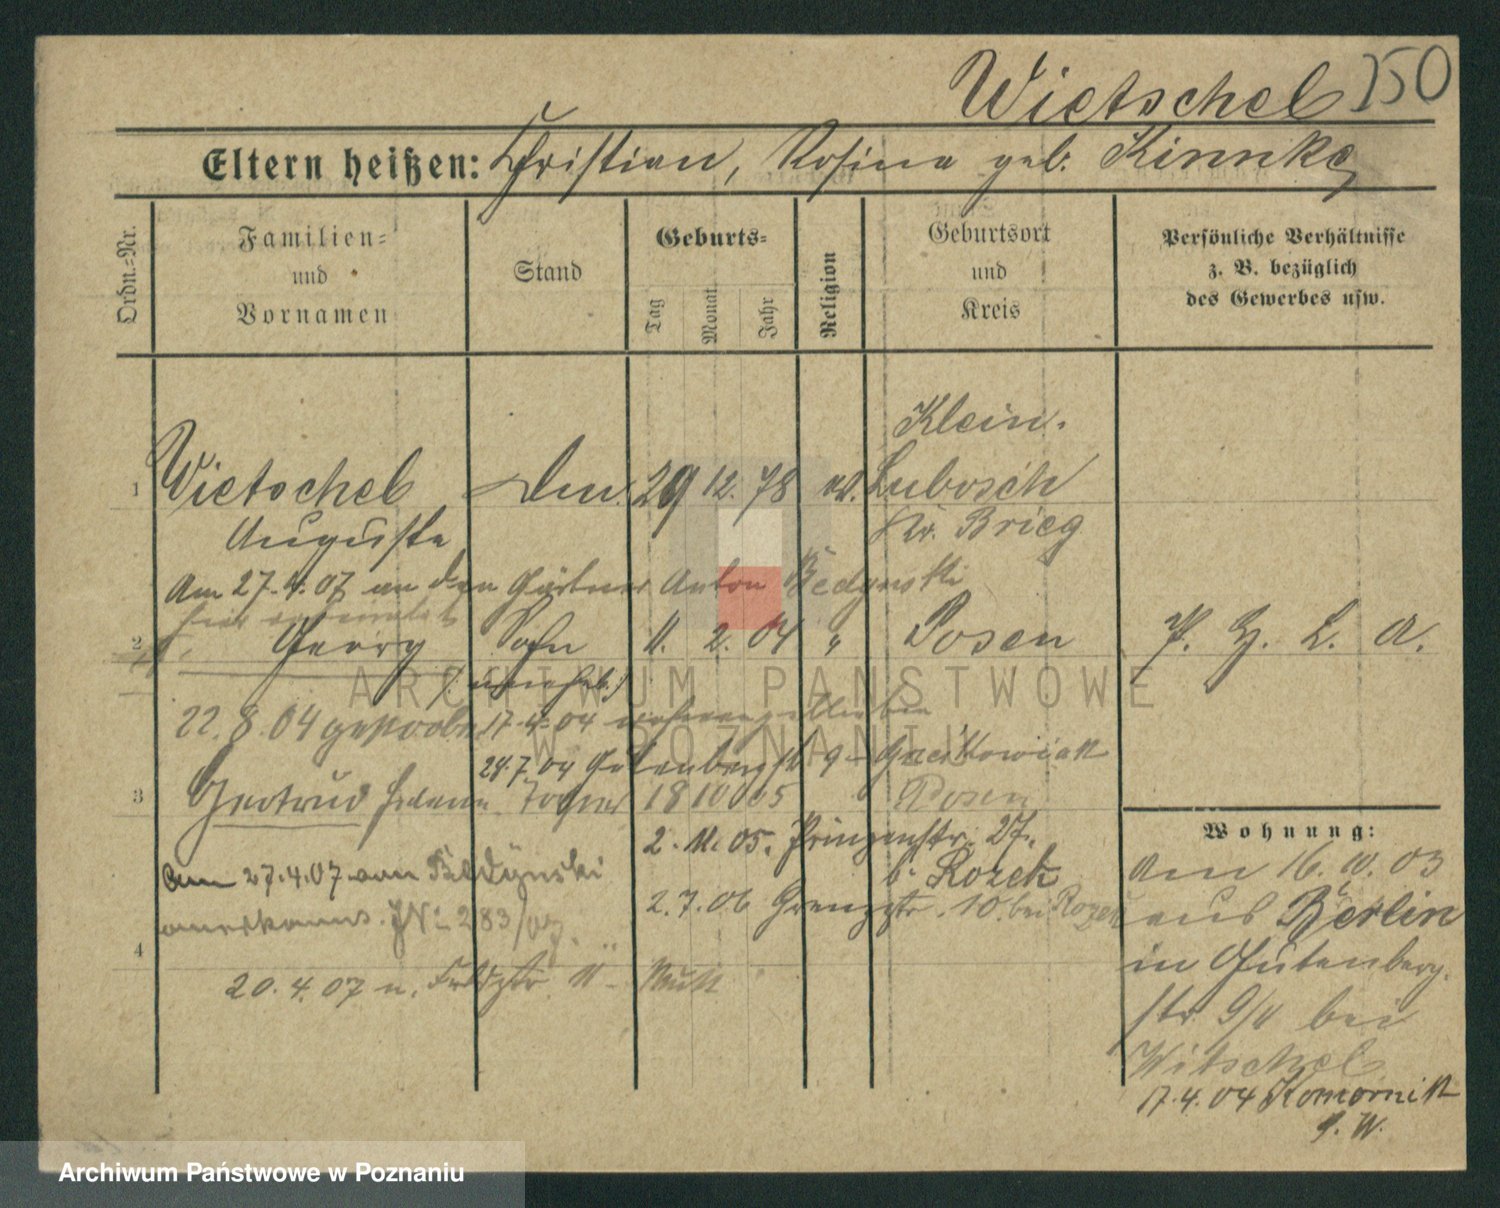 Wietschel 150
Eltern heißen: Christian, Rosina geb. Kinnke
Ordn.-Nr.
Familien- und Vornamen
Stand
Geburts-
Tag Monat Jahr
Religion
Geburtsort und Kreis
Persönliche Verhältnisse z. B. bezüglich des Gewerbes usw.
Klein.
1 Wietschel 29 12. 78 Lubosch
Auguste Kr. Brieg
Am 27.4.07 an den Gärtner Anton
hier
2 Georg Sohn 11. 2. 04 " Posen P. Z. L. A.
(: unehel. :)
22.8.04 gestorben 17.4.04
28.7.04 Gutenbergstr 9
3 Gertrud Helene Tochter 18 10 05 Posen
2. 11. 05. Prinzenstr. 27.
b. Rozek
Am 27.4.07 von
anerkannt. JN: 283/07.
2.7.06 Grenzstr. 10. bei Rozek
4
20.4.07 n. Feldstr. 11
Wohnung:
Am 16.10.03
aus Berlin
in Gutenberg-
str. 9/II bei
Witschel
17.4.04 Komornik
ARCHIWUM PAŃSTWOWE
W POZNANIU
Archiwum Państwowe w Poznaniu